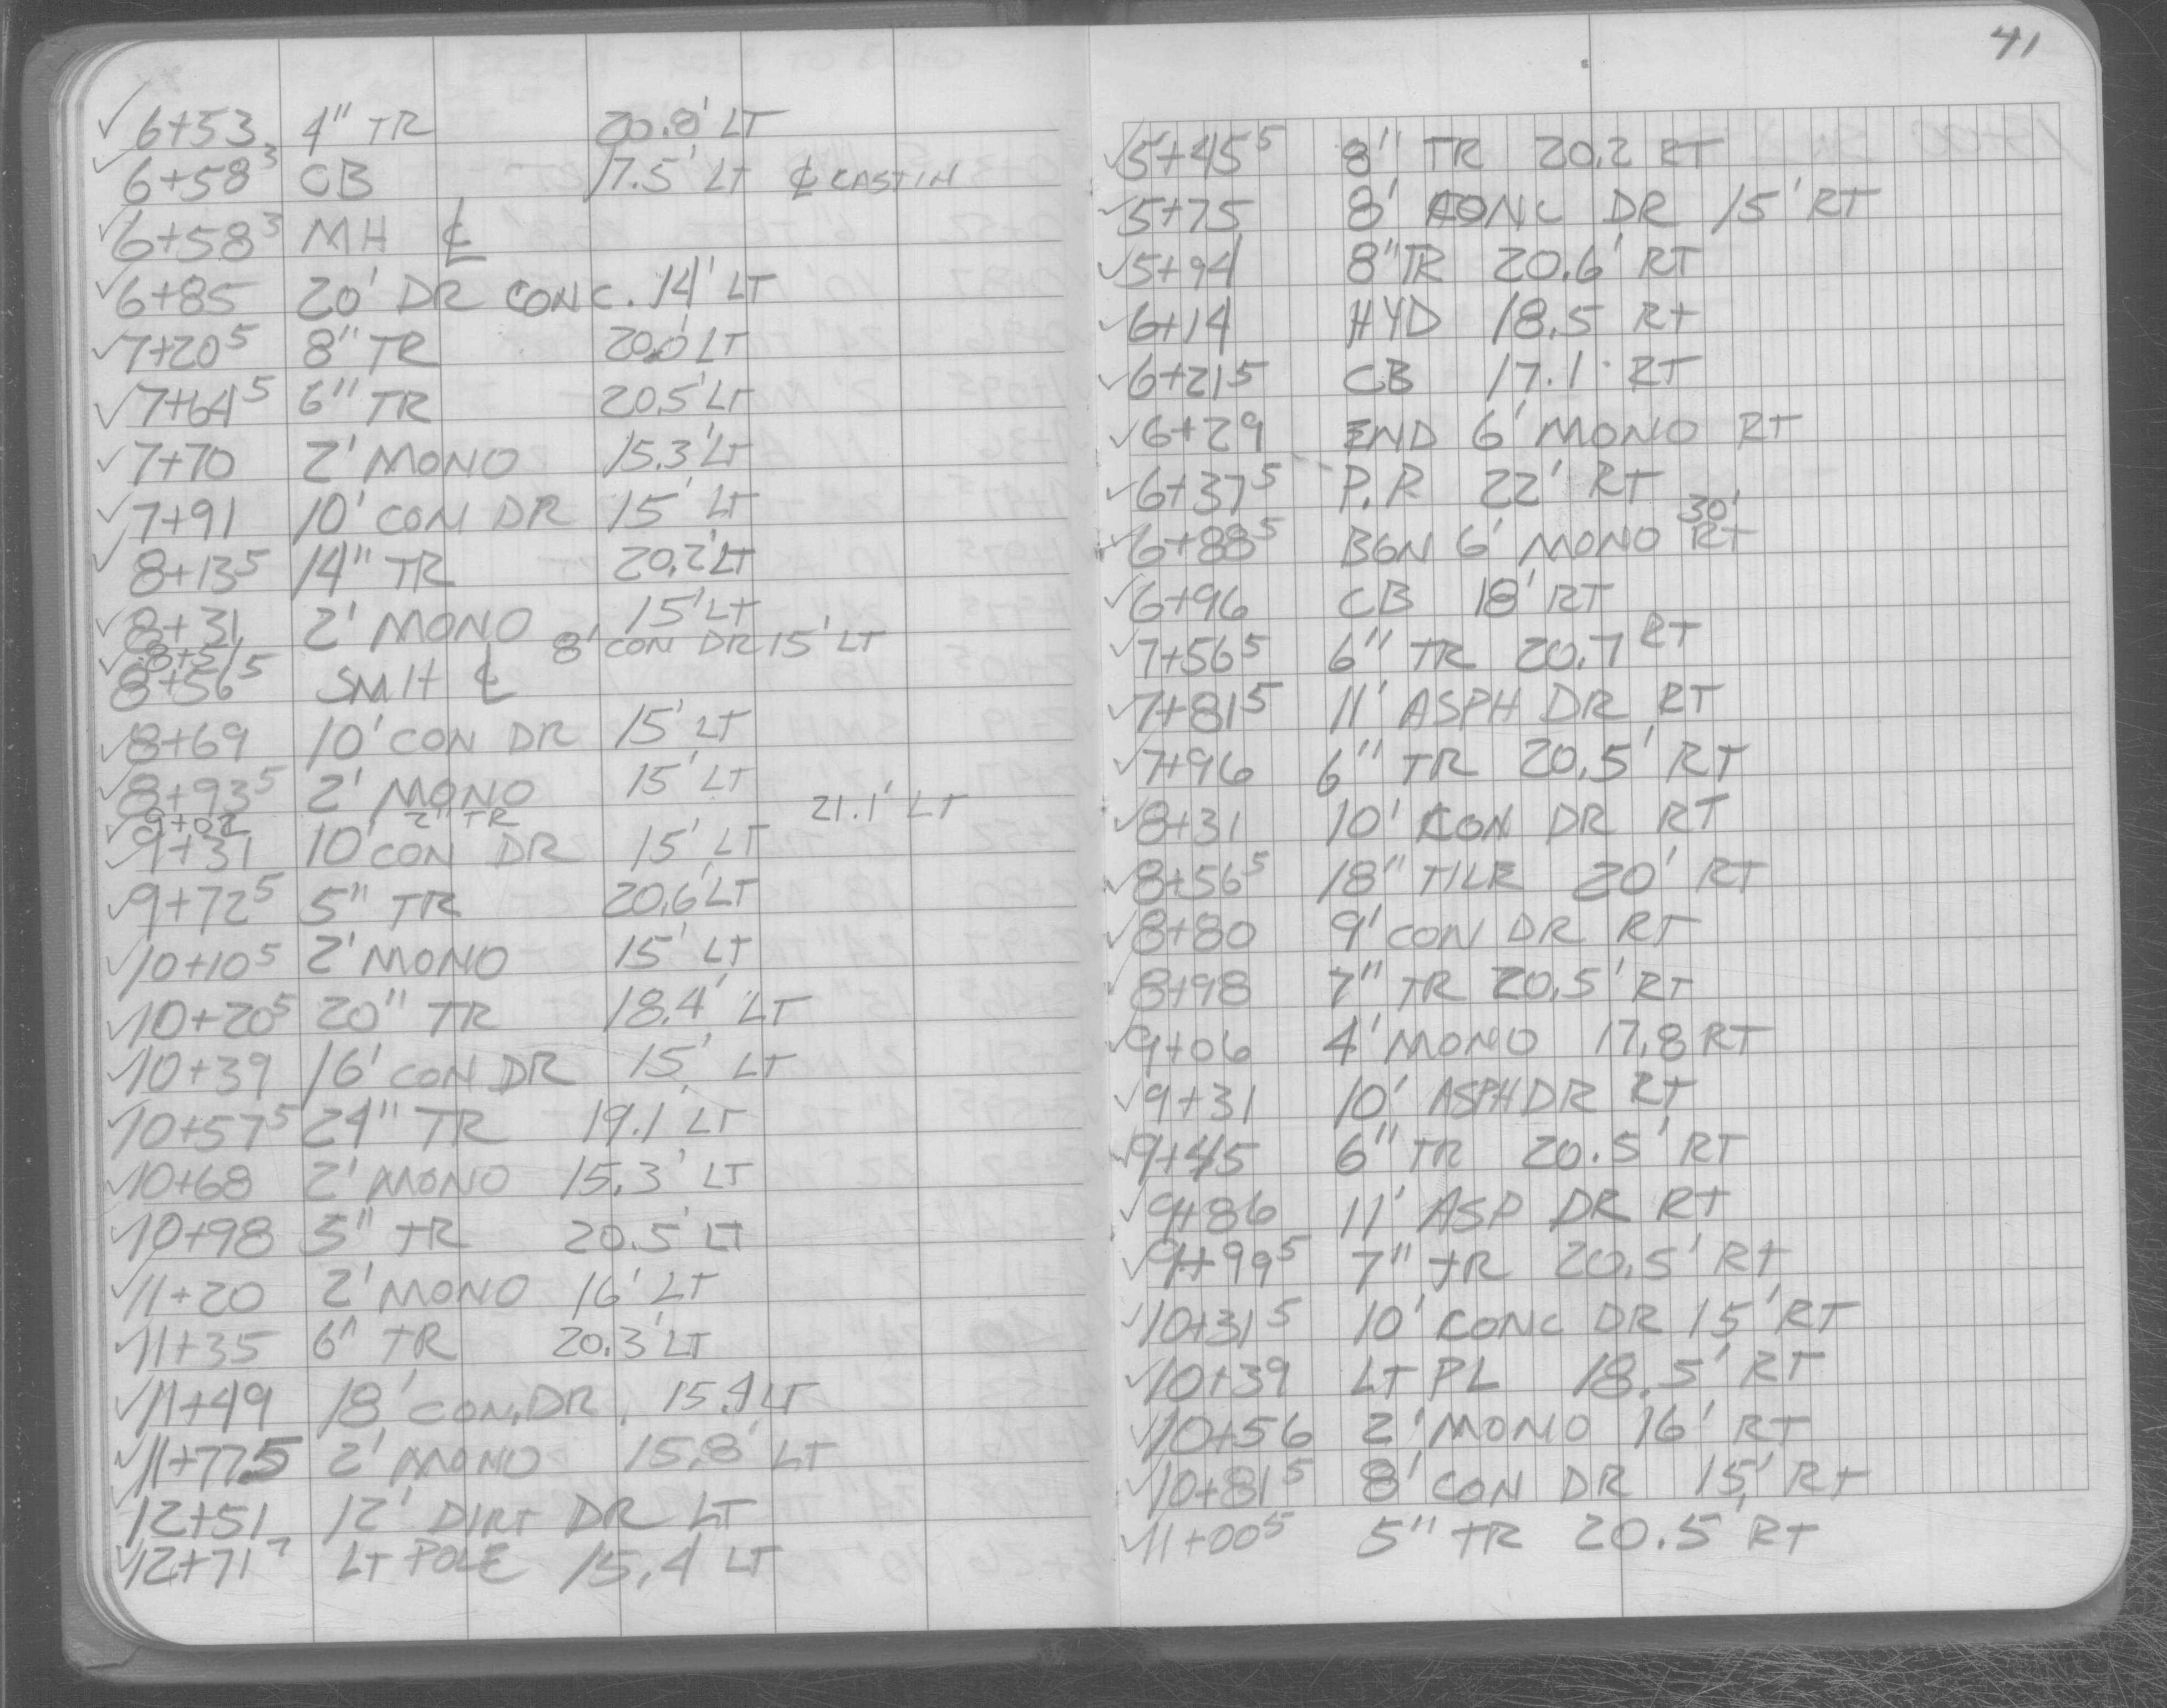 ✓ 6+53 4" TR 20.8' LT
✓ 6+58³ CB 17.5' LT ℄ CASTIN
✓ 6+58³ MH ℄
✓ 6+85 20' DR CONC. 14' LT
✓ 7+20⁵ 8" TR 20.0' LT
✓ 7+64⁵ 6" TR 20.5' LT
✓ 7+70 2' MONO 15.3' LT
✓ 7+91 10' CON DR 15' LT
✓ 8+13⁵ 14" TR 20.2' LT
✓ 8+31 2' MONO 15' LT
✓ 8+51⁵ 8' CON DR 15' LT
8+56⁵ SMH ℄
✓ 8+69 10' CON DR 15' LT
✓ 8+93⁵ 2' MONO 15' LT
✓ 9+02 2" TR 21.1' LT
✓ 9+31 10' CON DR 15' LT
✓ 9+72⁵ 5" TR 20.6' LT
✓ 10+10⁵ 2' MONO 15' LT
✓ 10+20⁵ 20" TR 18.4' LT
✓ 10+39 16' CON DR 15' LT
✓ 10+57⁵ 24" TR 19.1' LT
✓ 10+68 2' MONO 15.3' LT
✓ 10+98 5" TR 20.5' LT
✓ 11+20 2' MONO 16' LT
✓ 11+35 6" TR 20.3' LT
✓ 11+49 18' CON. DR. 15.4 LT
✓ 11+77.5 2' MONO 15.8' LT
✓ 12+51 12' DIRT DR LT
✓ 12+71⁷ LT POLE 15.4 LT
41
✓ 5+45⁵ 8" TR 20.2 RT
✓ 5+75 8' CONC DR 15' RT
✓ 5+94 8" TR 20.6' RT
✓ 6+14 HYD 18.5 RT
✓ 6+21⁵ CB 17.1' RT
✓ 6+29 END 6' MONO RT
✓ 6+37⁵ P.P. 22' RT
✓ 6+88⁵ BGN 6' MONO 30' RT
✓ 6+96 CB 18' RT
✓ 7+56⁵ 6" TR 20.7 RT
✓ 7+81⁵ 11' ASPH DR RT
✓ 7+96 6" TR 20.5' RT
✓ 8+31 10' CON DR RT
✓ 8+56⁵ 18" TILE 20' RT
✓ 8+80 9' CON DR RT
✓ 8+98 7" TR 20.5' RT
✓ 9+06 4' MONO 17.8 RT
✓ 9+31 10' ASPH DR RT
✓ 9+45 6" TR 20.5' RT
✓ 9+86 11' ASP DR RT
✓ 9+99⁵ 7" TR 20.5' RT
✓ 10+31⁵ 10' CONC DR 15' RT
✓ 10+39 LT PL 18.5' RT
✓ 10+56 2' MONO 16' RT
✓ 10+81⁵ 8' CON DR 15' RT
✓ 11+00⁵ 5" TR 20.5' RT